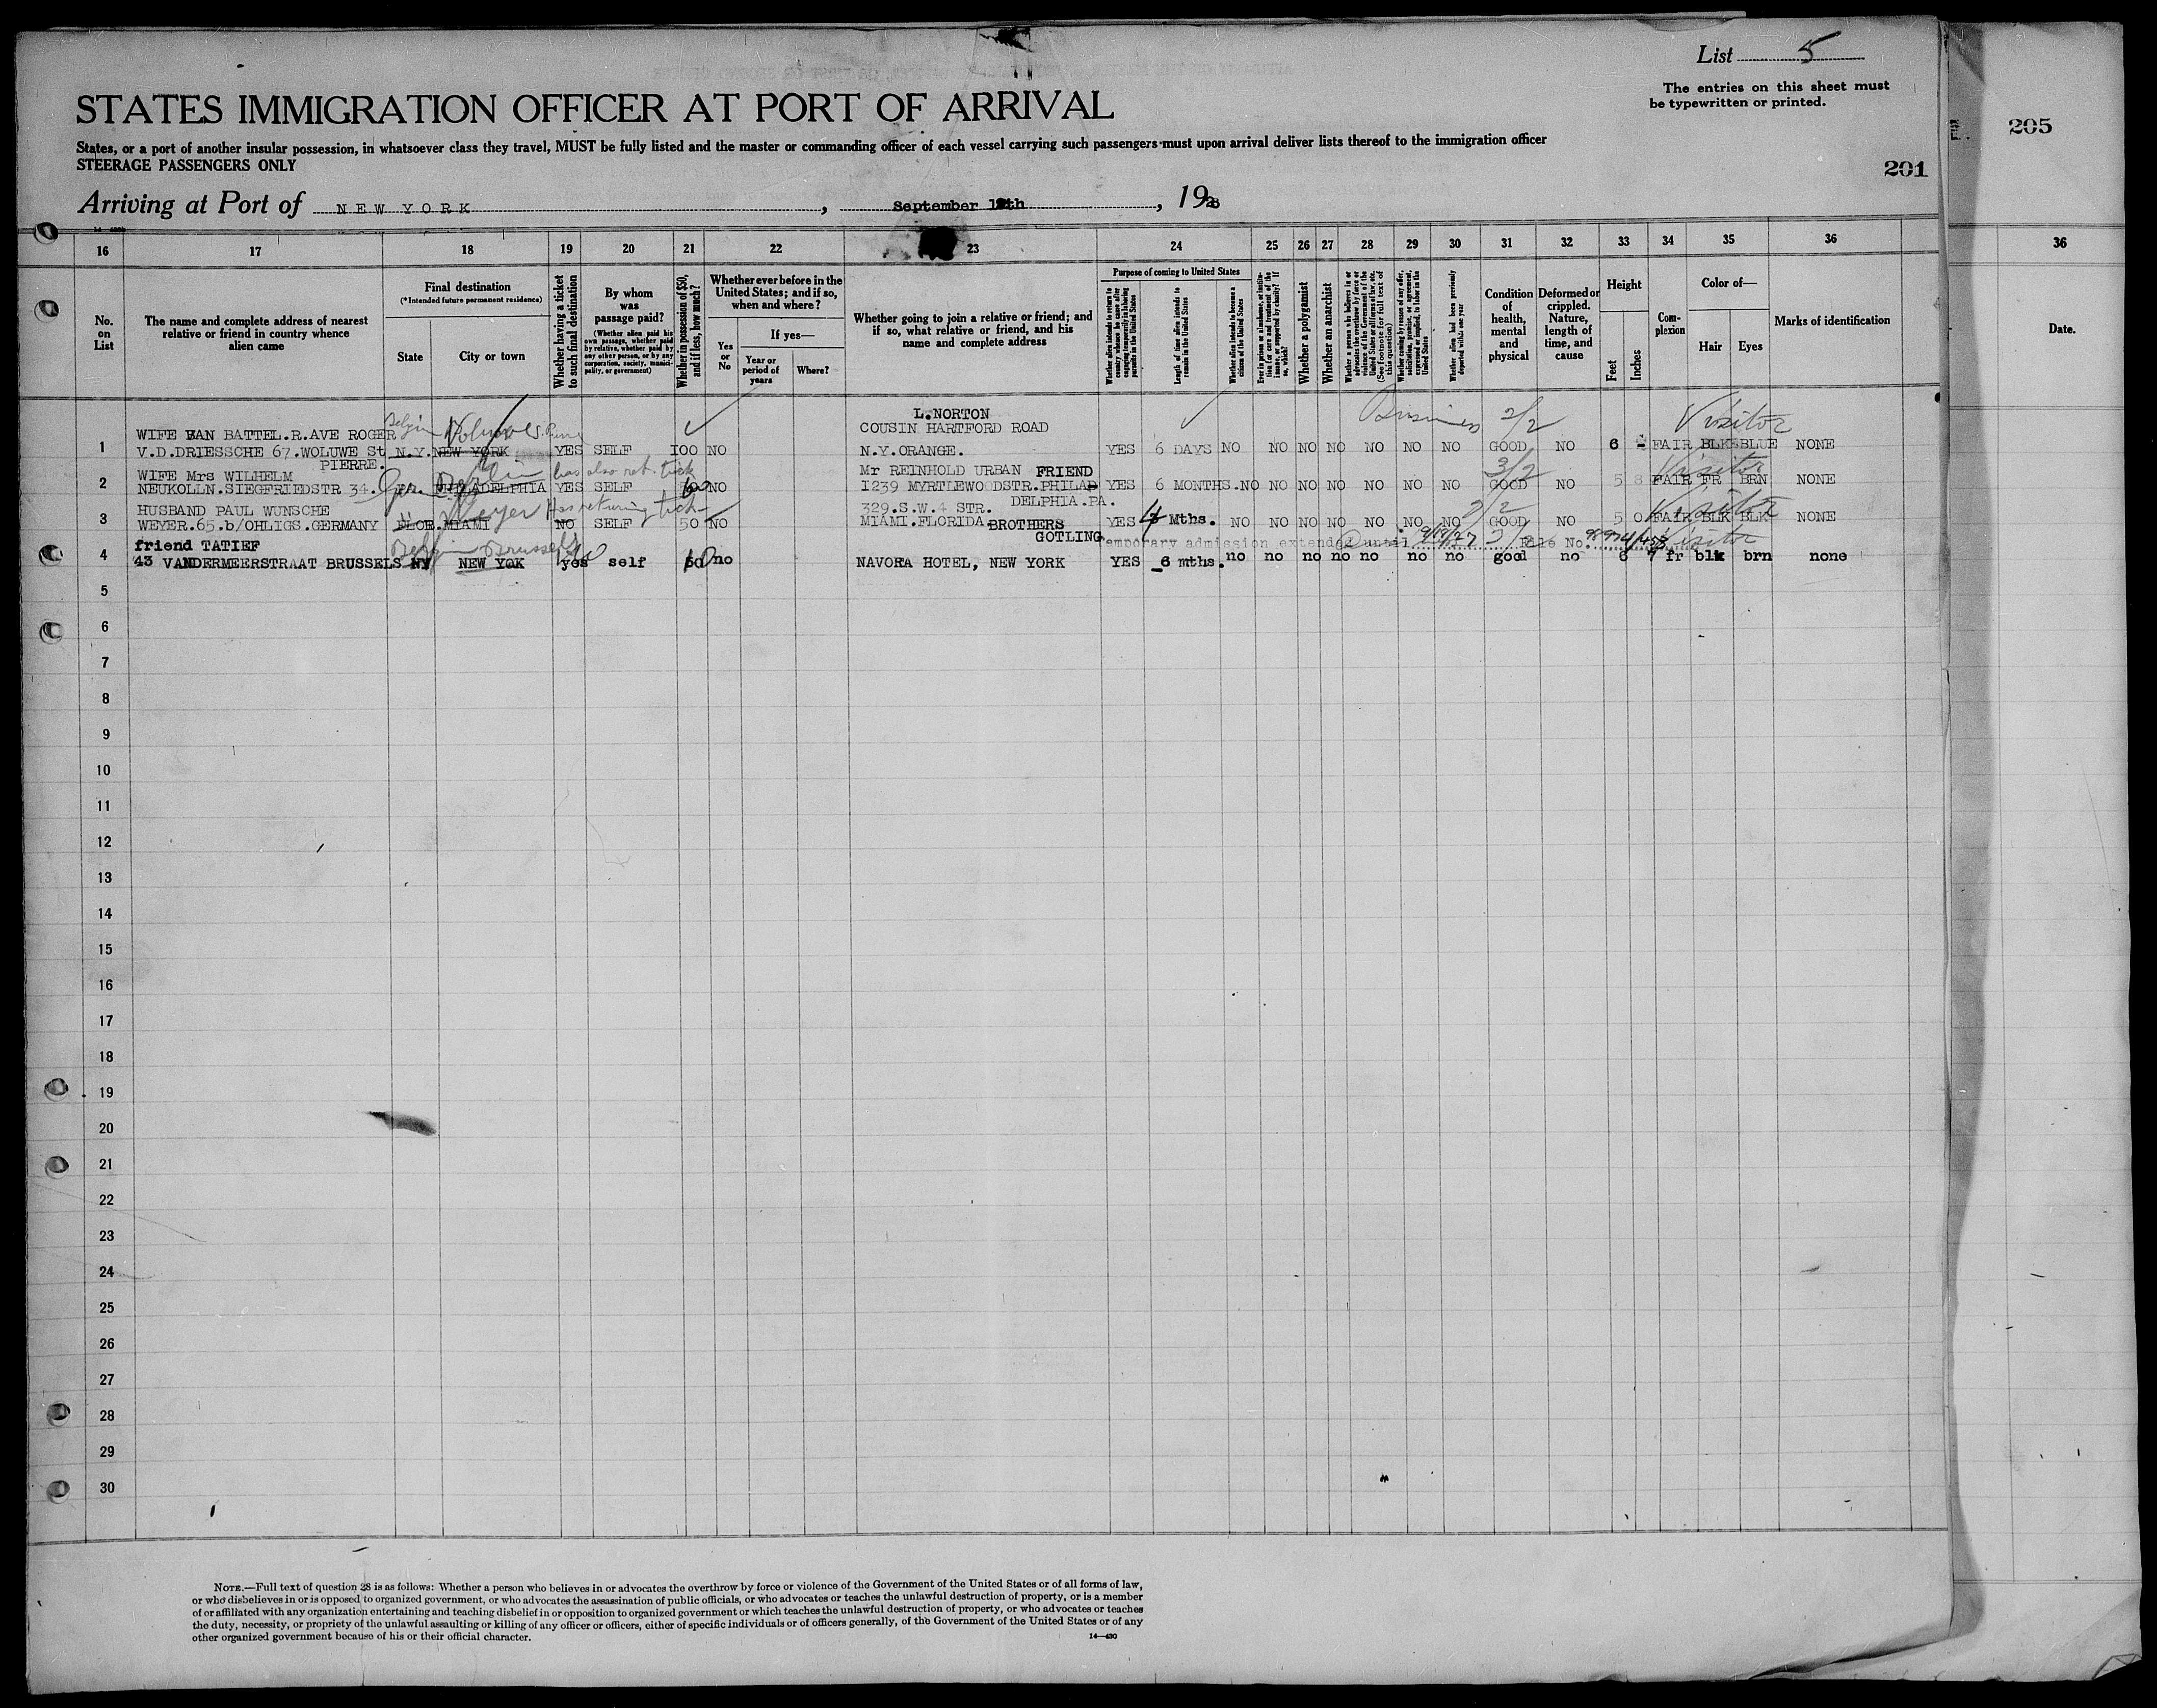 List 5
The entries on this sheet must
be typewritten or printed.
205
STATES IMMIGRATION OFFICER AT PORT OF ARRIVAL
States, or a port of another insular possession, in whatsoever class they travel, MUST be fully listed and the master or commanding officer of each vessel carrying such passengers must upon arrival deliver lists thereof to the immigration officer
STEERAGE PASSENGERS ONLY
201
Arriving at Port of NEW YORK, September 12th, 1926
16 17 18 19 20 21 22 23 24 25 26 27 28 29 30 31 32 33 34 35 36
36
No. on List
The name and complete address of nearest relative or friend in country whence alien came
Final destination
(*Intended future permanent residence)
State
City or town
Whether having a ticket to such final destination
By whom was passage paid?
(Whether alien paid his own passage, whether paid by relative, whether paid by any other person, or by any corporation, society, municipality, or government)
Whether in possession of $50, and if less, how much?
Whether ever before in the United States; and if so, when and where?
Yes or No
If yes—
Year or period of years
Where?
Whether going to join a relative or friend; and if so, what relative or friend, and his name and complete address
Purpose of coming to United States
Whether alien intends to return to country whence he came after engaging temporarily in laboring pursuits in the United States
Length of time alien intends to remain in the United States
Whether alien intends to become a citizen of the United States
Ever in prison or almshouse, or institution for care and treatment of the insane, or supported by charity? If so, which?
Whether a polygamist
Whether an anarchist
Whether a person who believes in or advocates the overthrow by force or violence of the Government of the United States or all forms of law, etc. (See footnote for full text of this question)
Whether coming by reason of any offer, solicitation, promise, or agreement, expressed or implied, to labor in the United States
Whether alien had been previously deported within one year
Condition of health, mental and physical
Deformed or crippled. Nature, length of time, and cause
Height
Feet
Inches
Complexion
Color of—
Hair
Eyes
Marks of identification
Date.
L.NORTON
Business 2/2 Visitor
WIFE VAN BATTEL.R.AVE ROGER COUSIN HARTFORD ROAD
1 V.D.DRIESSCHE 67.WOLUWE St N.Y. NEW YORK YES SELF I00 NO N.Y.ORANGE. YES 6 DAYS NO NO NO NO NO NO NO GOOD NO 6 - FAIR BLK BLUE NONE
PIERRE.
WIFE Mrs WILHELM Berlin has also ret. tick Mr REINHOLD URBAN FRIEND 3/2 Visitor
2 NEUKOLLN.SIEGFRIEDSTR 34. PHILADELPHIA YES SELF NO I239 MYRTLEWOODSTR.PHILAD YES 6 MONTHS. NO NO NO NO NO NO NO GOOD NO 5 8 FAIR FR BRN NONE
HUSBAND PAUL WUNSCHE Weyer Has returning tick 329.S.W.4 STR. DELPHIA.PA. 2/2 Visitor
3 WEYER.65.b/OHLIGS.GERMANY FLOR. MIAMI NO SELF 50 NO MIAMI.FLORIDA BROTHERS YES 4 Mths. NO NO NO NO NO NO NO GOOD NO 5 0 FAIR BLK BLK NONE
GOTLING
friend TATIEF Belgium Brussels Temporary admission extended until 9/19/27 File No. Visitor
4 43 VANDERMEERSTRAAT BRUSSELS NY NEW YOK yes self no NAVORA HOTEL, NEW YORK YES 6 mths. no no no no no no no good no 6 7 fr blk brn none
5
6
7
8
9
10
11
12
13
14
15
16
17
18
19
20
21
22
23
24
25
26
27
28
29
30
NOTE.—Full text of question 28 is as follows: Whether a person who believes in or advocates the overthrow by force or violence of the Government of the United States or of all forms of law,
or who disbelieves in or is opposed to organized government, or who advocates the assassination of public officials, or who advocates or teaches the unlawful destruction of property, or is a member
of or affiliated with any organization entertaining and teaching disbelief in or opposition to organized government or which teaches the unlawful destruction of property, or who advocates or teaches
the duty, necessity, or propriety of the unlawful assaulting or killing of any officer or officers, either of specific individuals or of officers generally, of the Government of the United States or of any
other organized government because of his or their official character.
14—430